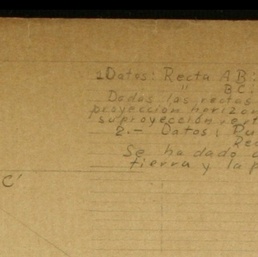 1 Datos: Recta AB:
" BC:
Dadas las rectas
proyección horizon
su proyección vert
2.- Datos: Pu
Rec
Se ha dado
tierra y la p
C'